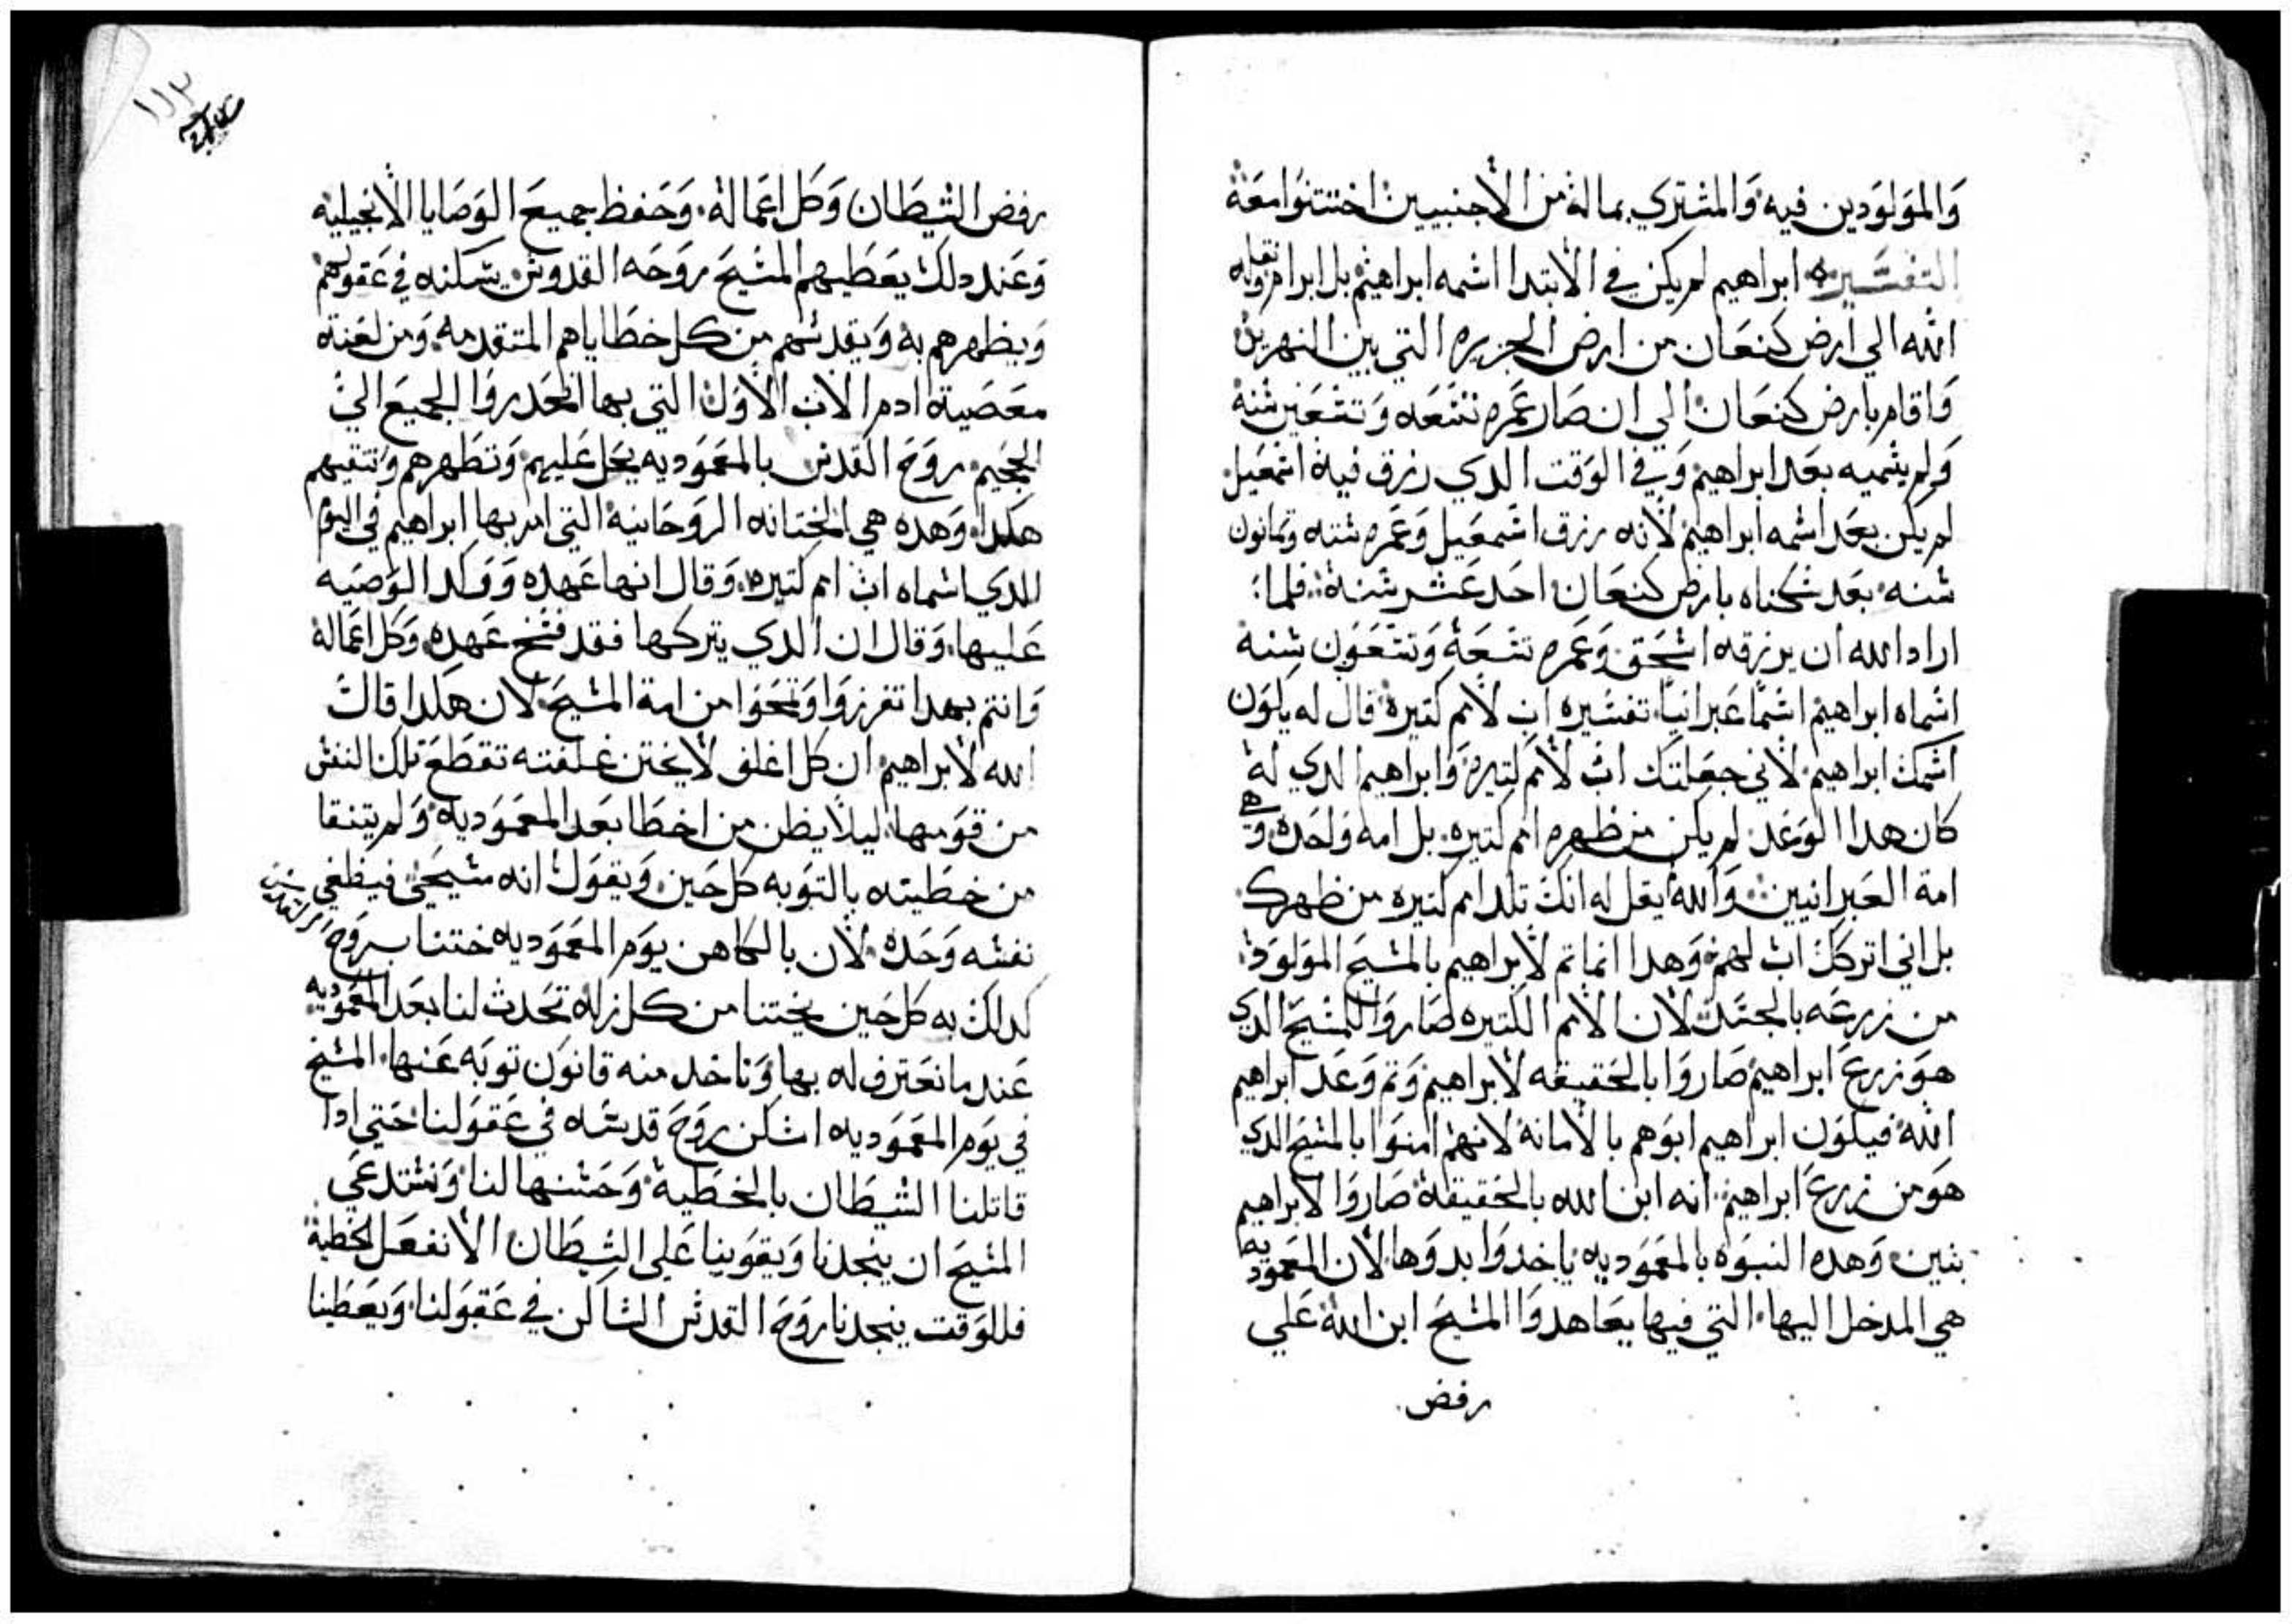 والمولودين فيه والمشتري بماله من الاجنبيين اختتنوا معه
التفسير ابراهيم لم يكن في الابتدا اسمه ابراهيم بل ابرام ونقله
الله الي ارض كنعان من ارض الجزيره التي بين النهرين
واقام بارض كنعان الي ان صار عمره تسعه وتسعين سنه
ولم يسميه بعد ابراهيم وفي الوقت الدي رزق فيه اسمعيل
لم يكن بعد اسمه ابراهيم لانه رزق اسمعيل وعمره سته وتمانون
سنه بعد سكناه بارض كنعان احد عشر سنة فلما
اراد الله ان يرزقه اسحق وعمره تسعة وتسعون سنه
اسماه ابراهيم اسمًا عبرانيًا تفسيره اب لامم كتيره قال له يكون
اسمك ابراهيم لاني جعلتك اب لامم كتيره وابراهيم الدي له
كان هدا الوعد لم يكن من ظهره امم كتيره بل امه واحده وهي
امة العبرانيين والله لم يقل له انك تلد امم كتيره من ظهرك
بل اني اتركك اب لهم وهدا انما تم لابراهيم بالمسيح المولود
من زرعه بالجسد لان الامم الكتيره صاروا للمسيح الدي
هو زرع ابراهيم صاروا بالحقيقه لابراهيم وتم وعد ابراهيم
الله فيكون ابراهيم ابوهم بالامانة لانهم امنوا بالمسيح الدي
هو من زرع ابراهيم انه ابن الله بالحقيقة صاروا لابراهيم
بنين وهده النبوه بالمعموديه ياخدوا بدوها لان المعموديه
هي المدخل اليها التي فيها يعاهدوا المسيح ابن الله علي
رفض
١١٣
رفض الشيطان وكل اعماله وحفظ جميع الوصايا الانجيليه
وعند دلك يعطيهم المسيح روحه القدوس يسكنه في عقولهم
ويطهرهم به ويقدسهم من كل خطاياهم المتقدمه ومن لعنة
معصية ادم الاب الاول التي بها انحدروا الجميع الي
الجحيم روح القدس بالمعموديه يحل عليهم وتطهرهم وتنقيهم
هكدا وهده هي الختانه الروحانيه التي امر بها ابراهيم في اليوم
الدي اسماه اب امم كتيره وقال انها عهده ووكد الوصيه
عليها وقال ان الدي يتركها فقد فسخ عهده وكل اعماله
وانتم بهدا تفرزوا وتمحوا من امة المسيح لان هكدا قال
الله لابراهيم ان كل اغلف لا يختن غلفته تقطع تلك النفس
من قومها ليلا يظن من اخطا بعد المعموديه ولم يتنقا
من خطيته بالتوبه كل حين ويقول انه مسيحي فيطغي
نفسه وحده لان بالكاهن يوم المعموديه ختنا بروح القدس
كدلك به كل حين يختتنا من كل زله تحدث لنا بعد المعموديه
عند ما نعترف له بها وناخد منه قانون توبه عنها المسيح
في يوم المعموديه اسكن روح قدسه في عقولنا حتي ادا
قاتلنا الشيطان بالخطية وحسنها لنا ونستدعي
المسيح ان ينجدنا ويقوينا علي الشيطان الا نفعل الخطية
فللوقت ينجدنا روح القدس الساكن في عقولنا ويعطينا